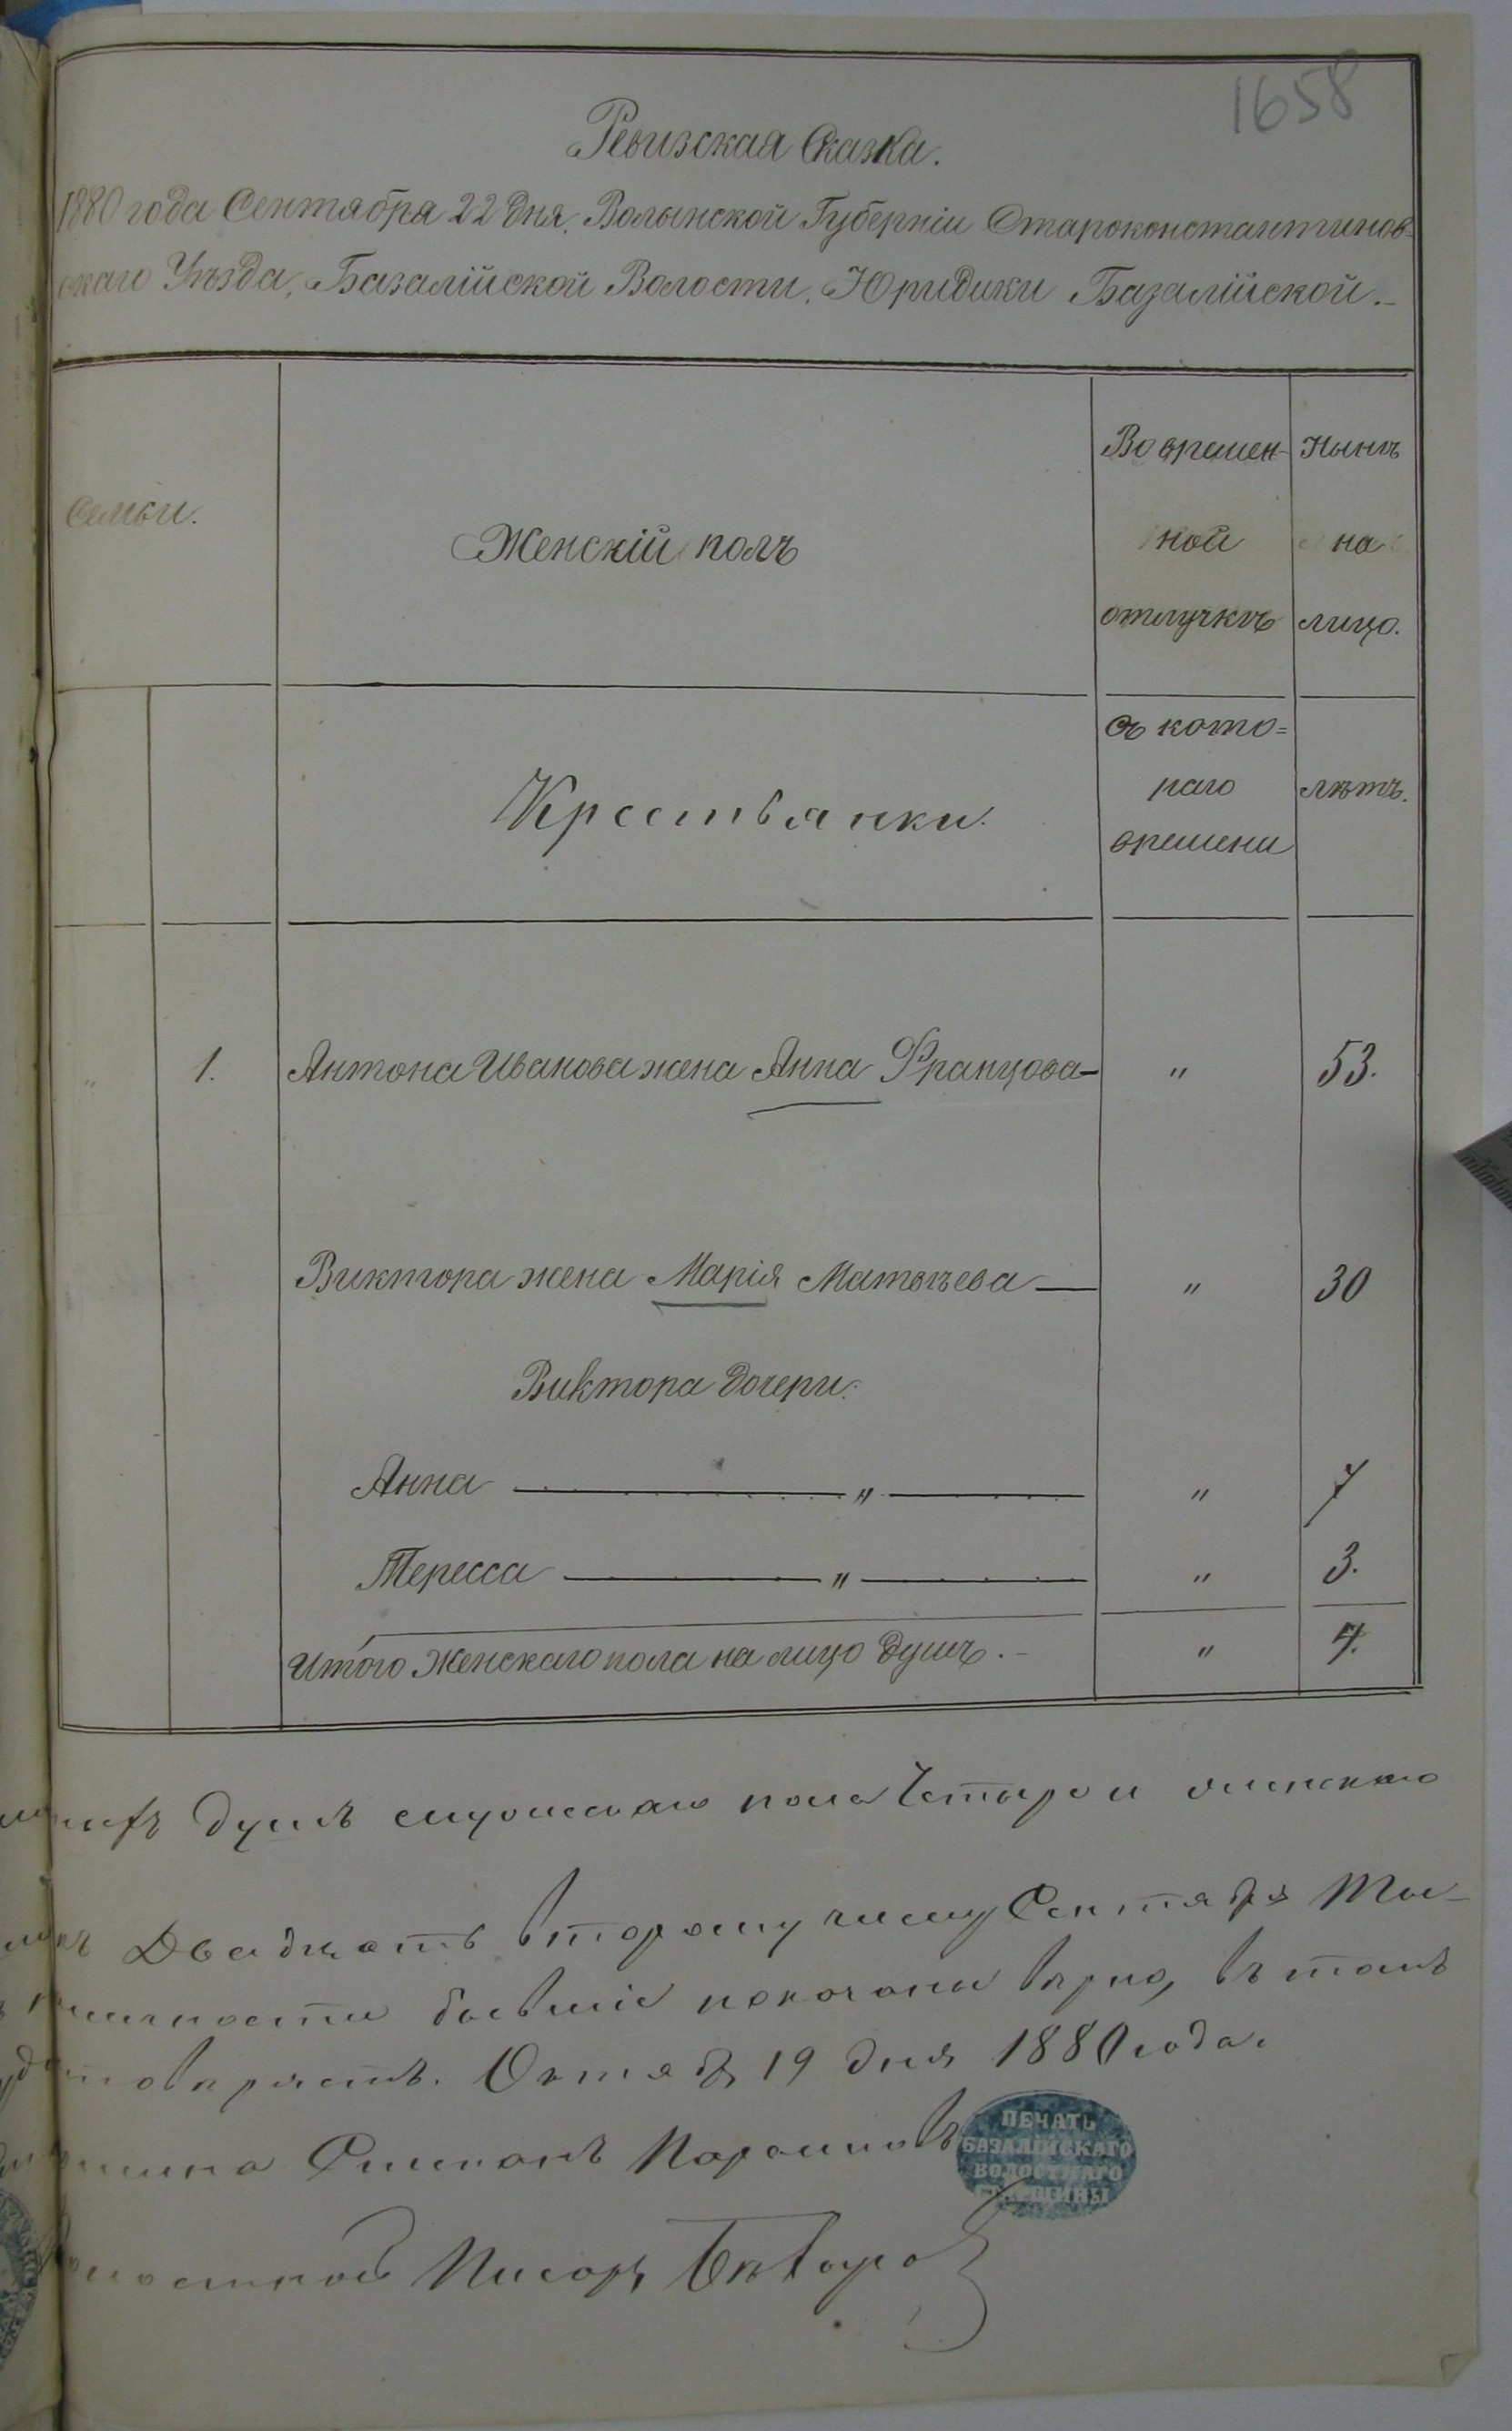 1658
Ревизская Сказка.
1880 года Сентября 22 дня. Волынской Губерніи Староконстантинов-
скаго Уѣзда, Базалійской Волости, Юридики Базалійской.-
Семьи.
Женскій полъ
Во времен-
ной
отлучкѣ
Нынѣ
на
лицо.
Крестьянки.
съ кото=
раго
времени
лѣтъ.
" 1. Антона Иванова жена Анна Францова- " 53.
Виктора жена Марія Матвѣева — " 30
Виктора дочери:
Анна — " — " 7
Тересса — " — " 3.
Итого женскаго пола на лицо душъ.- " 4.
душъ мужескаго пола Четыре и женскаго
Двадцать второму числу Сентября Ты-
бывшіе показаны вѣрно, въ томъ
Октяб. 19 дня 1880 года.
ПЕЧАТЬ
БАЗАЛІЙСКАГО
ВОЛОСТНАГО
СТАРШИНЫ
Писарь